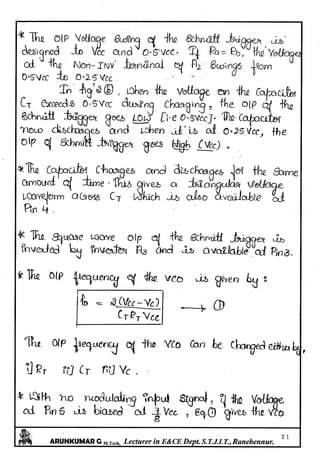 * The O|P Voltage Swing of the Schmitt trigger is
designed to Vcc and 0.5Vcc. If Ra = Rb, the Voltages
at the Non-INV terminal of A2 Swings from
0.5Vcc to 0.25Vcc
In fig 2(b), When the Voltage on the Capacitor
CT Exceeds 0.5Vcc during Charging, the O|P of the
Schmitt trigger goes LOW [i.e 0.5Vcc]. The Capacitor
now discharges and when it is at 0.25Vcc, the
O|P of Schmitt trigger goes High (Vcc).
* The Capacitor Charges and discharges for the Same
amount of time. This gives a triangular Voltage
Waveform across CT Which is also available at
Pin 4.
* The Square Wave O|P of the Schmitt trigger is
inverted by inverter A3 and is available at Pin 3.
* The O|P frequency of the VCO is given by :
fo = 2(Vcc - Vc) / CT RT Vcc → ①
The O|P frequency of the VCO Can be Changed either by,
i] RT ii] CT iii] Vc .
* With no modulating input Signal, if the Voltage
at Pin 5 is biased at 7/8 Vcc, Eq ① gives the VCO
ARUNKUMAR G M.Tech, Lecturer in E&CE Dept. S.T.J.I.T., Ranebennur.
21